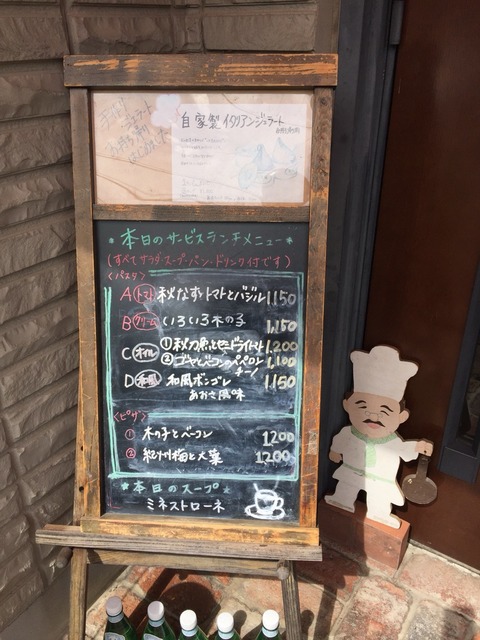 自家製イタリアンジェラート
*本日のサービスランチメニュー*
(すべてサラダ・スープ・パン・ドリンク付です)
<パスタ>
A トマト 秋なすとトマトとバジル 1150
B クリーム いろいろ木の子 1,150
C オイル ①秋刀魚とセミドライトマト 1,200
②ゴーヤとベーコンのペペロンチーノ 1,100
D 和風 和風ボンゴレ 1150
あおさ風味
<ピザ>
① 木の子とベーコン 1200
② 紀州梅と大葉 1200
*本日のスープ*
ミネストローネ